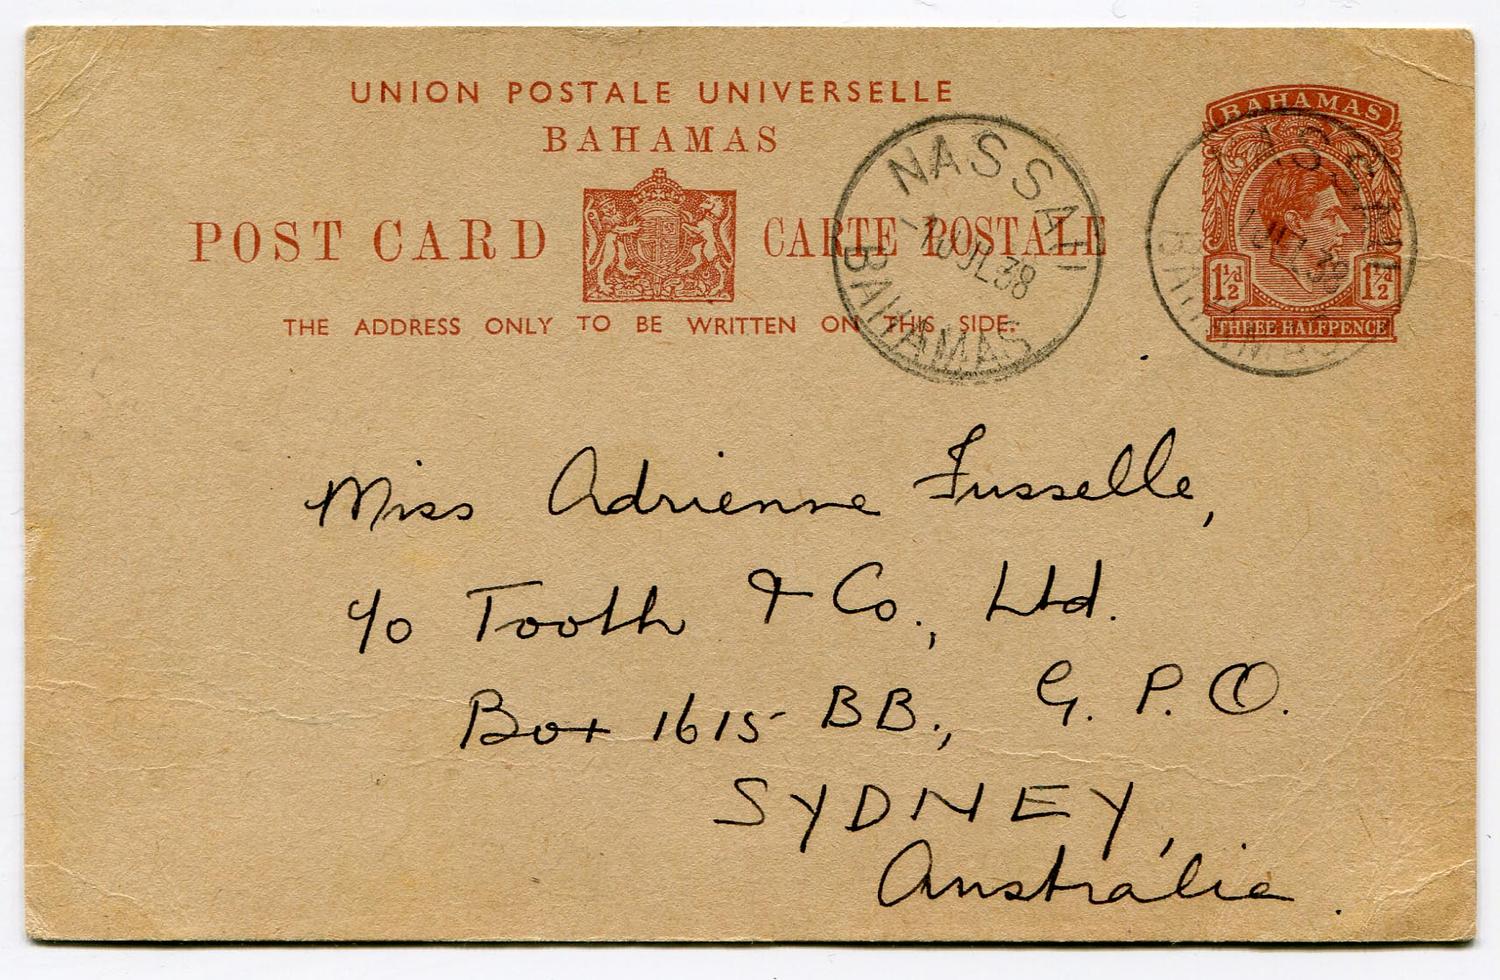 UNION POSTALE UNIVERSELLE
BAHAMAS
POST CARD CARTE POSTALE
THE ADDRESS ONLY TO BE WRITTEN ON THIS SIDE.
NASSAU
JL 38
BAHAMAS
BAHAMAS
1½d 1½d
THREE HALFPENCE
NASSAU
JL 38
BAHAMAS
Miss Adrienne Fusselle,
c/o Tooth & Co., Ltd.
Box 1615 BB., G. P. O.
SYDNEY,
Australia.